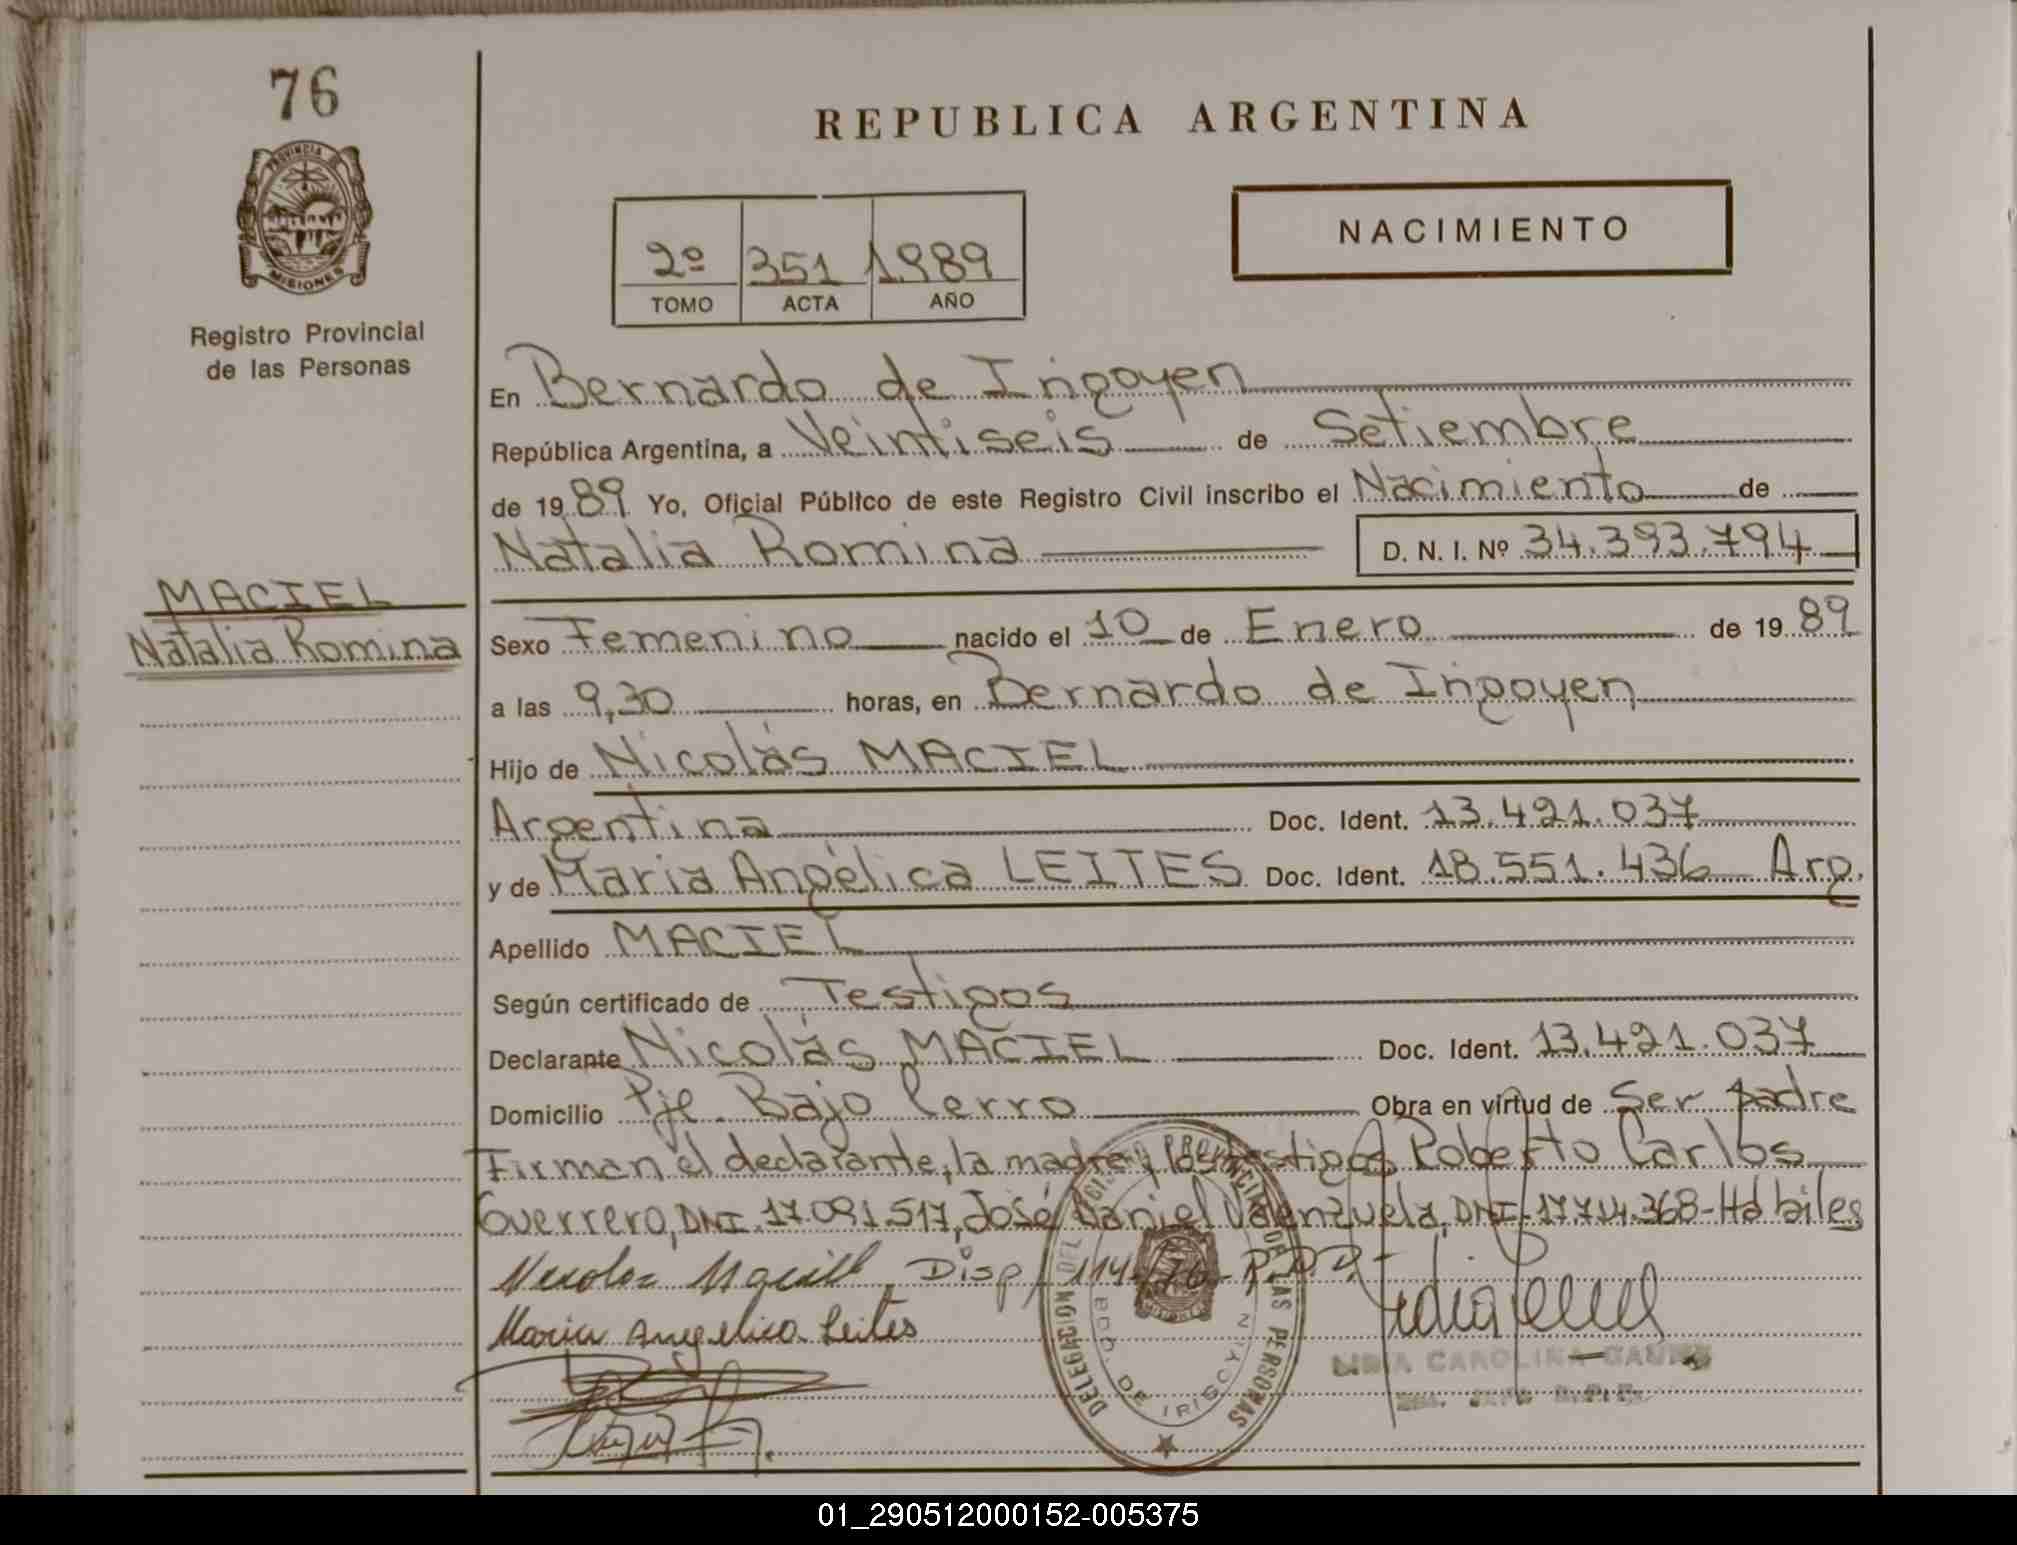 76
PROVINCIA DE
MISIONES
Registro Provincial
de las Personas
REPUBLICA ARGENTINA
2º 351 1989
TOMO ACTA AÑO
NACIMIENTO
En Bernardo de Irigoyen
República Argentina, a Veintiseis de Setiembre
de 1989 Yo, Oficial Público de este Registro Civil inscribo el Nacimiento de
Natalia Romina D. N. I. Nº 34.393.794
MACIEL
Natalia Romina
Sexo Femenino nacido el 10 de Enero de 1989
a las 9,30 horas, en Bernardo de Irigoyen
Hijo de Nicolás MACIEL
Argentina Doc. Ident. 13.421.037
y de Maria Angélica LEITES Doc. Ident. 18.551.436 Arg.
Apellido MACIEL
Según certificado de Testigos
Declarante Nicolás MACIEL Doc. Ident. 13.421.037
Domicilio Pje. Bajo Cerro Obra en virtud de Ser padre
Firman el declarante, la madre y los testigos Roberto Carlos
Guerrero, DNI. 17.091.517, José Daniel Valenzuela, DNI. 17.714.368-Hábiles
Disp. 114/76-
Maria Angelica Leites
DELEGACION DEL REGISTRO PROVINCIAL DE LAS PERSONAS
BDO. DE IRIGOYEN
LIDIA CAROLINA
01_290512000152-005375